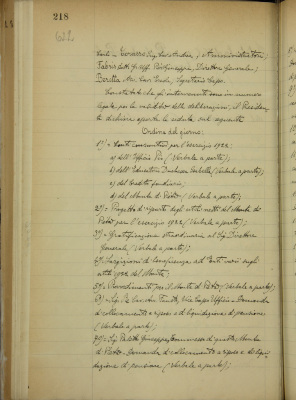 218
Fabris Dott. Giuseppe, Direttore Generale;
Beretta Segretario Capo.
Constatato che gl'intervenuti sono in numero
legale per la validità delle deliberazioni, il Presidente
dichiara aperta la seduta sul seguente
Ordine del giorno:
1°/= Conti consuntivi per l'esercizio 1922:
a) dell'Opera Pia (Verbale a parte);
b) dell'Istituto Duchessa Isabella (Verbale a parte);
c) del Credito fondiario;
d) del Monte di Pietà (Verbale a parte);
2°/= Progetto di riparto degli utili netti del Monte di
Pietà per l'esercizio 1922 (Verbale a parte);
3°/= Gratificazione straordinaria al Sig. Direttore
Generale, (Verbale a parte);
4°/= Largizioni di beneficenza sugli
utili 1922 del Monte;
5°/= Provvedimenti pel Monte di Pietà (Verbale a parte);
6°/= Sig. Vice Capo Ufficio = Domanda
di collocamento a riposo e di liquidazione di pensione
(Verbale a parte);
7°/= Sig. Giuseppe, Commesso di questo Monte
di Pietà = domanda di collocamento a riposo e di liqui-
dazione di pensione (Verbale a parte);